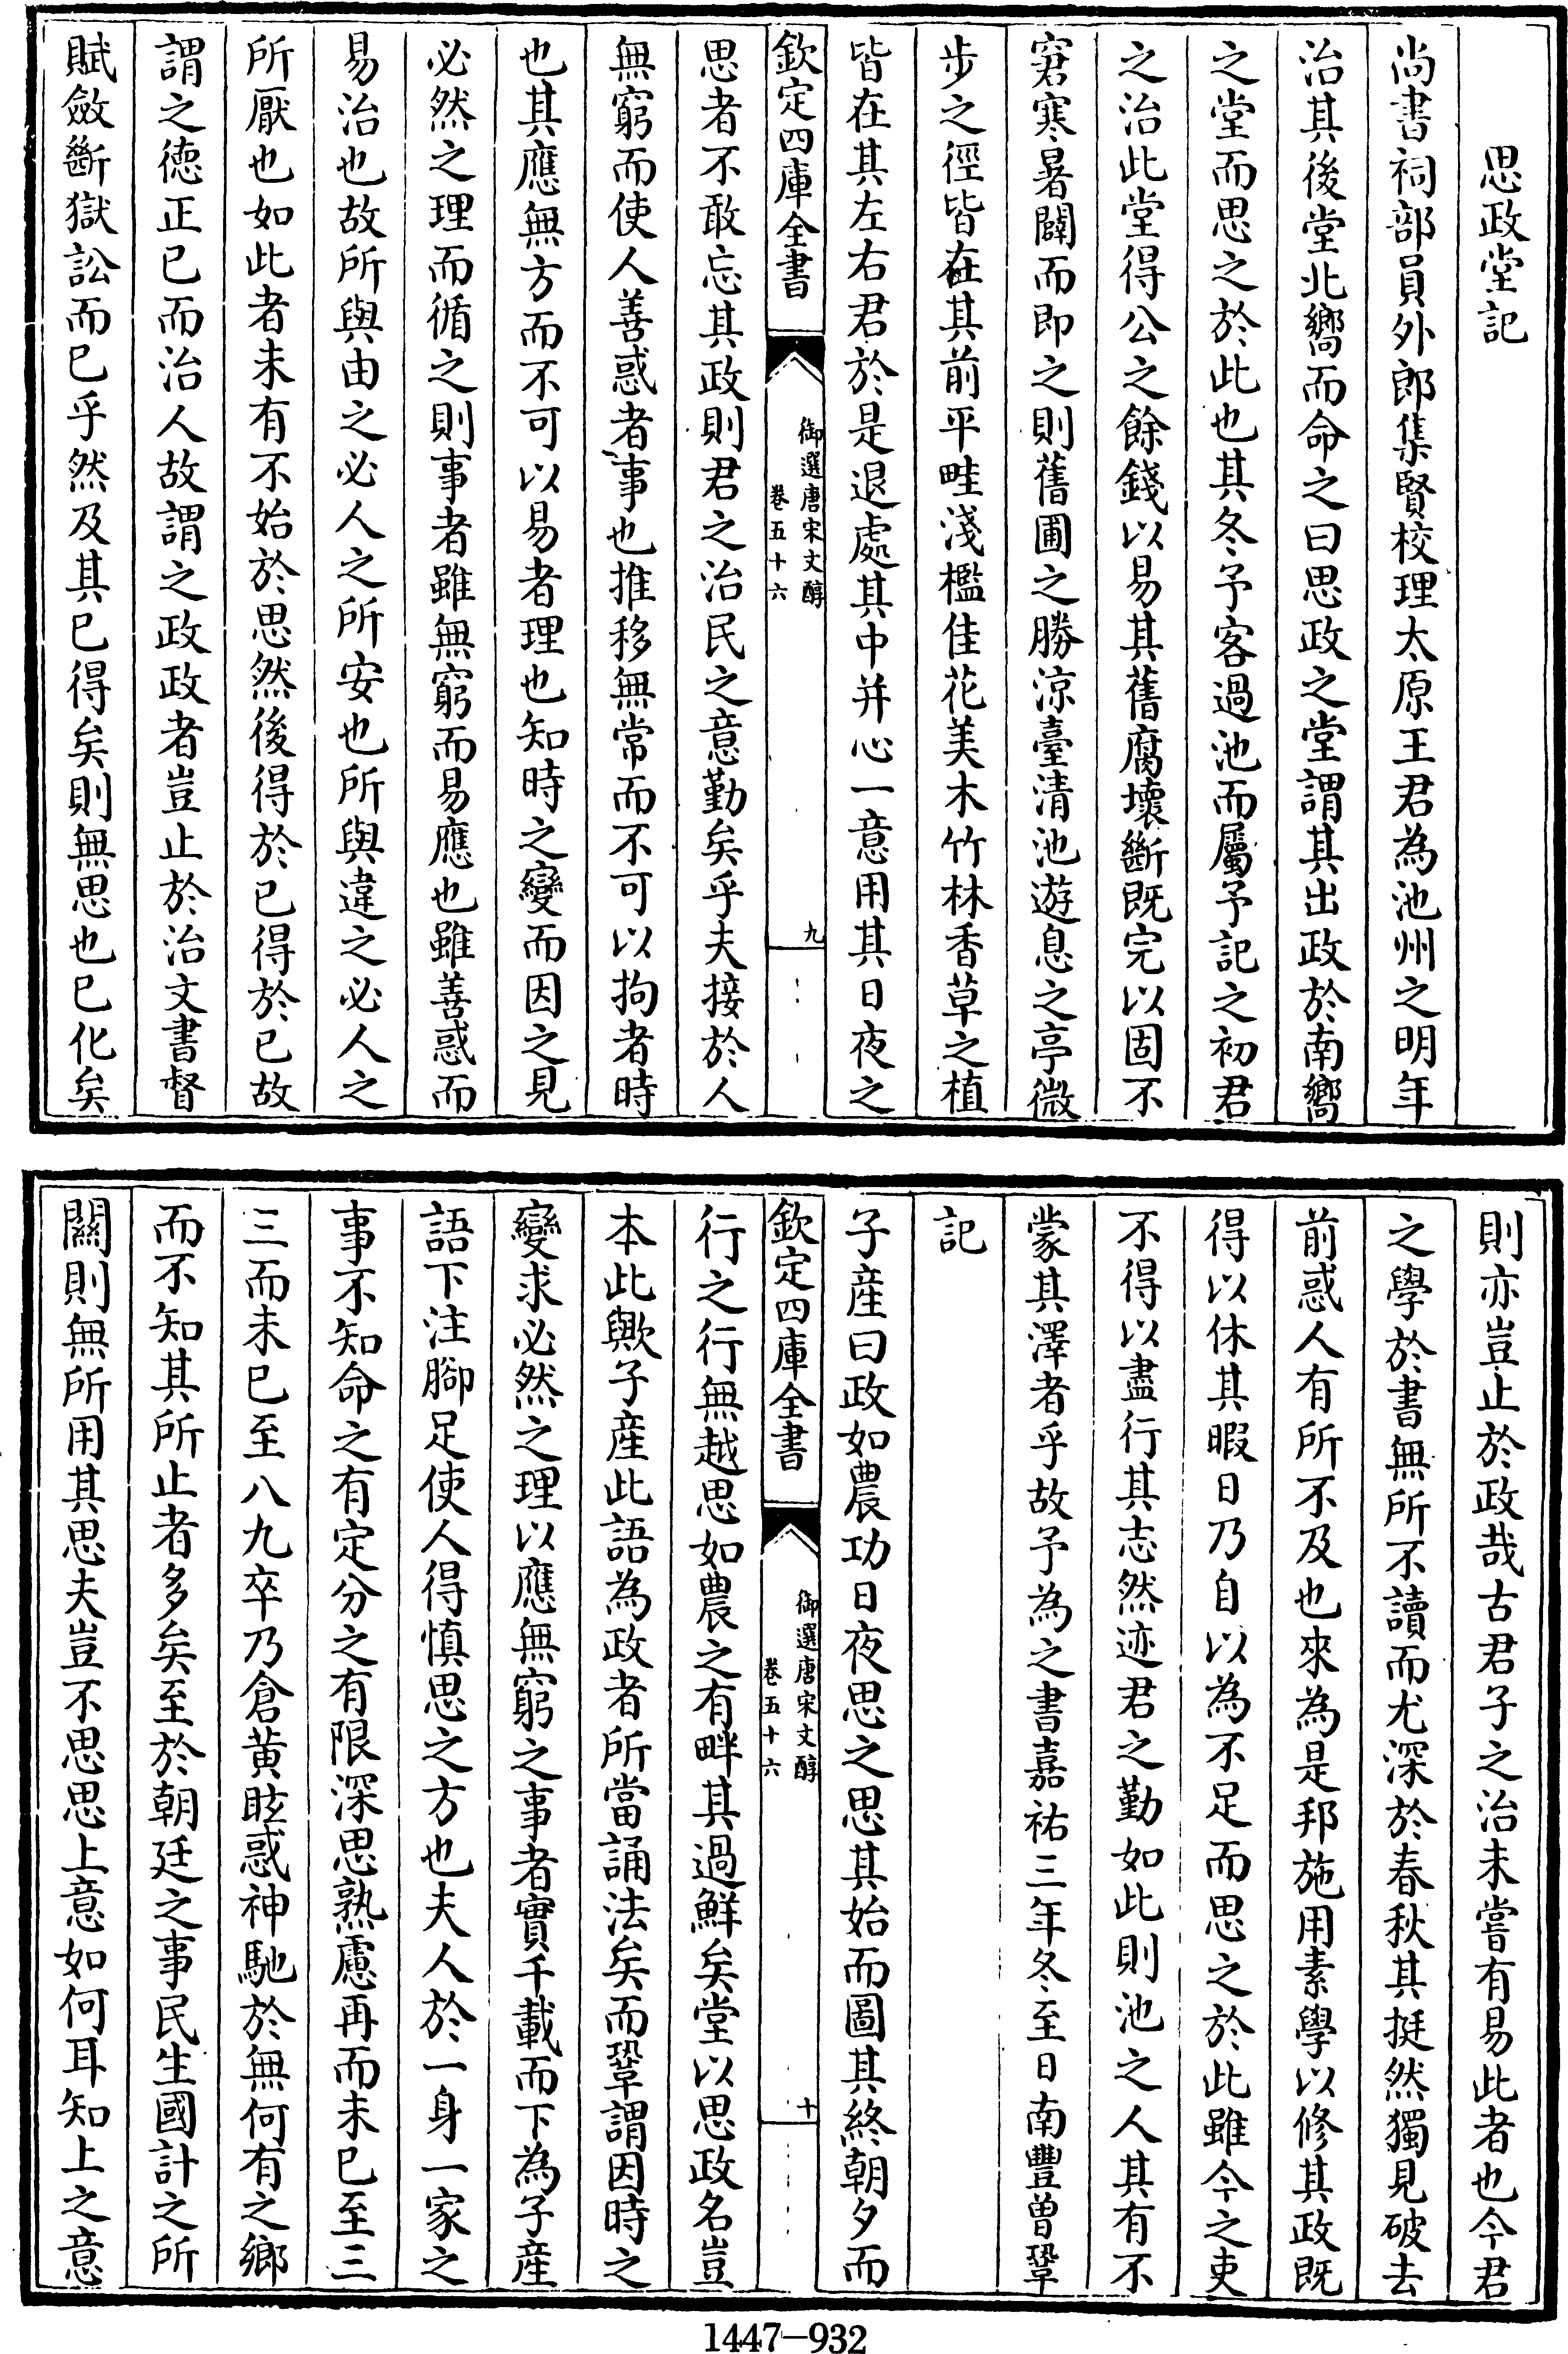 思政堂記
尚書祠部員外郎集賢校理太原王君為池州之明年
治其後堂北嚮而命之曰思政之堂謂其出政於南嚮
之堂而思之於此也其冬予客過池而屬予記之初君
之治此堂得公之餘錢以易其舊腐壞斷既完以固不
窘寒暑闢而即之則舊圃之勝涼臺清池遊息之亭微
步之徑皆在其前平畦淺檻佳花美木竹林香草之植
皆在其左右君於是退處其中并心一意用其日夜之
欽定四庫全書
御選唐宋文醇
卷五十六
九
思者不敢忘其政則君之治民之意勤矣乎夫接於人
無窮而使人善惑者事也推移無常而不可以拘者時
也其應無方而不可以易者理也知時之變而因之見
必然之理而循之則事者雖無窮而易應也雖善惑而
易治也故所與由之必人之所安也所與違之必人之
所厭也如此者未有不始於思然後得於已得於已故
謂之徳正已而治人故謂之政政者豈止於治文書督
賦斂斷獄訟而已乎然及其已得矣則無思也已化矣
則亦豈止於政哉古君子之治未嘗有易此者也今君
之學於書無所不讀而尤深於春秋其挺然獨見破去
前惑人有所不及也來為是邦施用素學以修其政既
得以休其暇日乃自以為不足而思之於此雖今之吏
不得以盡行其志然迹君之勤如此則池之人其有不
蒙其澤者乎故予為之書嘉祐三年冬至日南豐曾鞏
記
子產曰政如農功日夜思之思其始而圖其終朝夕而
欽定四庫全書
御選唐宋文醇
卷五十六
十
行之行無越思如農之有畔其過鮮矣堂以思政名豈
本此歟子產此語為政者所當誦法矣而鞏謂因時之
變求必然之理以應無窮之事者實千載而下為子產
語下注腳足使人得慎思之方也夫人於一身一家之
事不知命之有定分之有限深思熟慮再而未已至三
三而未已至八九卒乃倉黄眩惑神馳於無何有之鄉
而不知其所止者多矣至於朝廷之事民生國計之所
關則無所用其思夫豈不思思上意如何耳知上之意
1447-932